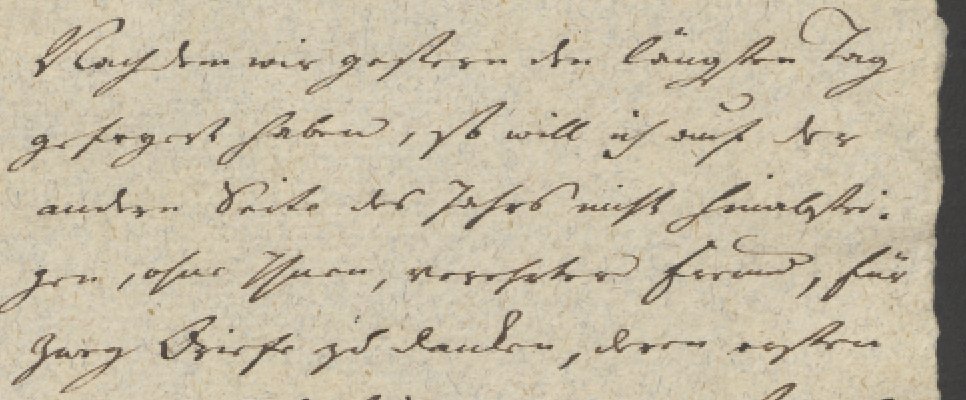 Nachdem wir gestern den längsten Tag
gefeyert haben, so will ich auf der
andern Seite des Jahrs nicht hinabstei-
gen, ohne Ihnen, verehrter Freund, für
zwey Briefe zu danken, deren ersten